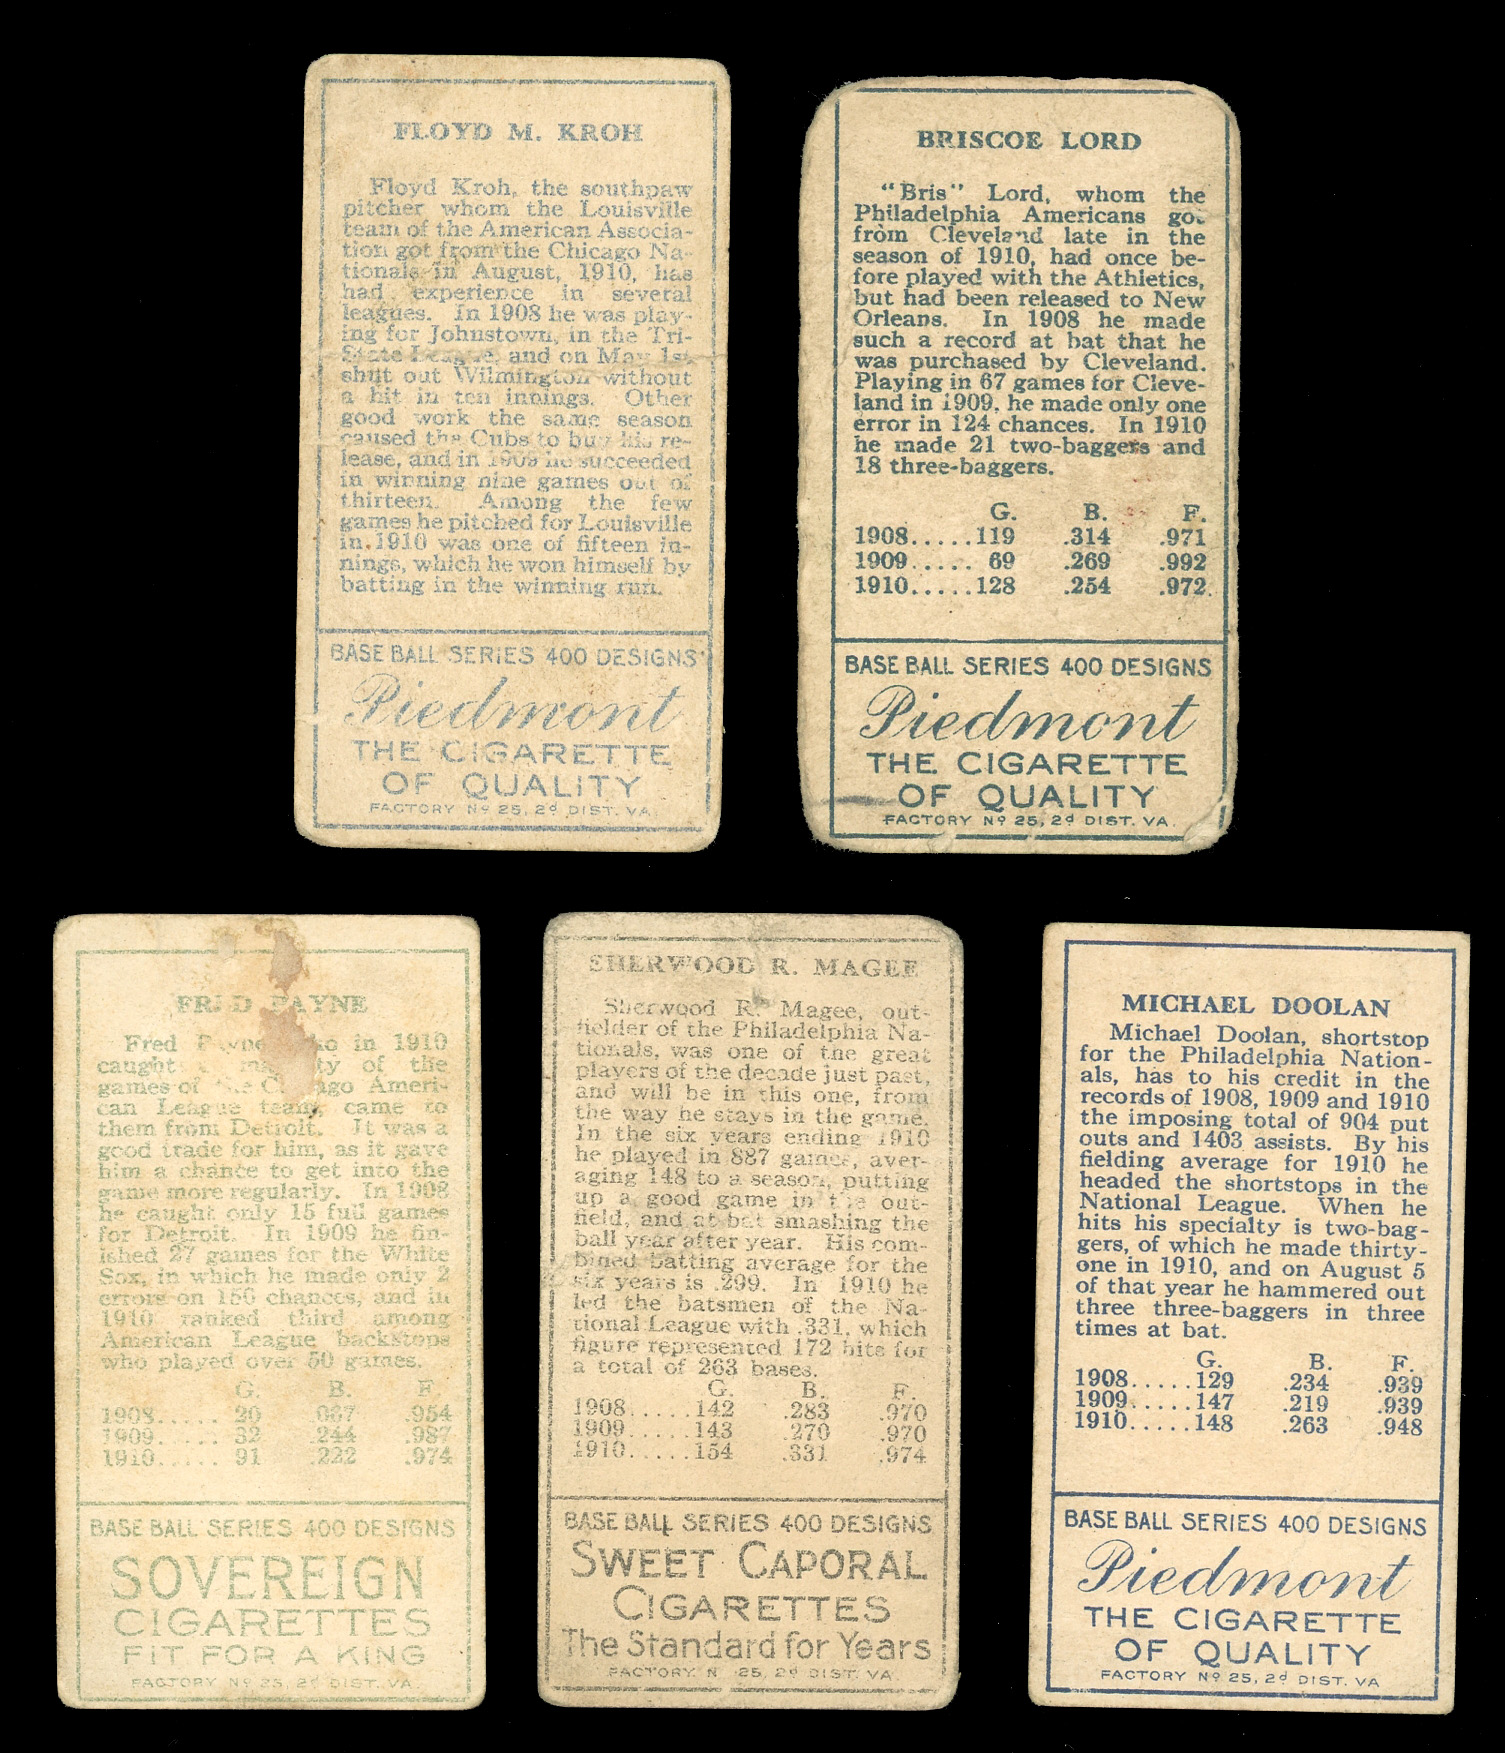 FLOYD M. KROH
Floyd Kroh, the southpaw
pitcher whom the Louisville
team of the American Associa-
tion got from the Chicago Na-
tionals in August, 1910, has
had experience in several
leagues. In 1908 he was play-
ing for Johnstown, in the Tri-
State League, and on May 1st,
shut out Wilmington without
a hit in ten innings. Other
good work the same season
caused the Cubs to buy his re-
lease, and in 1909 he succeeded
in winning nine games out of
thirteen. Among the few
games he pitched for Louisville
in 1910 was one of fifteen in-
nings, which he won himself by
batting in the winning run.
BASE BALL SERIES 400 DESIGNS
Piedmont
THE CIGARETTE
OF QUALITY
FACTORY No 25, 2d DIST. VA.
BRISCOE LORD
"Bris" Lord, whom the
Philadelphia Americans got
from Cleveland late in the
season of 1910, had once be-
fore played with the Athletics,
but had been released to New
Orleans. In 1908 he made
such a record at bat that he
was purchased by Cleveland.
Playing in 67 games for Cleve-
land in 1909, he made only one
error in 124 chances. In 1910
he made 21 two-baggers and
18 three-baggers.
G. B. F.
1908.....119 .314 .971
1909..... 69 .269 .992
1910.....128 .254 .972
BASE BALL SERIES 400 DESIGNS
Piedmont
THE CIGARETTE
OF QUALITY
FACTORY No 25, 2d DIST. VA.
FRED PAYNE
Fred Payne, who in 1910
caught ty of the
games of the Chicago Ameri-
can League team, came to
them from Detroit. It was a
good trade for him, as it gave
him a chance to get into the
game more regularly. In 1908
he caught only 15 full games
for Detroit. In 1909 he fin-
ished 27 games for the White
Sox, in which he made only 2
errors on 156 chances, and in
1910 ranked third among
American League backstops
who played over 50 games.
G. B. F.
1908..... 20 .067 .954
1909..... 32 .244 .987
1910..... 91 .222 .974
BASE BALL SERIES 400 DESIGNS
SOVEREIGN
CIGARETTES
FIT FOR A KING
FACTORY No 25, 2d DIST. VA.
SHERWOOD R. MAGEE
Sherwood R. Magee, out-
fielder of the Philadelphia Na-
tionals, was one of the great
players of the decade just past,
and will be in this one, from
the way he stays in the game.
In the six years ending 1910
he played in 887 games, aver-
aging 148 to a season, putting
up a good game in the out-
field, and at bat smashing the
ball year after year. His com-
bined batting average for the
six years is .299. In 1910 he
led the batsmen of the Na-
tional League with .331, which
figure represented 172 hits for
a total of 263 bases.
G. B. F.
1908.....142 .283 .970
1909.....143 .270 .970
1910.....154 .331 .974
BASE BALL SERIES 400 DESIGNS
SWEET CAPORAL
CIGARETTES
The Standard for Years
FACTORY N 25, 2d DIST. VA.
MICHAEL DOOLAN
Michael Doolan, shortstop
for the Philadelphia Nation-
als, has to his credit in the
records of 1908, 1909 and 1910
the imposing total of 904 put
outs and 1403 assists. By his
fielding average for 1910 he
headed the shortstops in the
National League. When he
hits his specialty is two-bag-
gers, of which he made thirty-
one in 1910, and on August 5
of that year he hammered out
three three-baggers in three
times at bat.
G. B. F.
1908.....129 .234 .939
1909.....147 .219 .939
1910.....148 .263 .948
BASE BALL SERIES 400 DESIGNS
Piedmont
THE CIGARETTE
OF QUALITY
FACTORY No 25, 2d DIST. VA